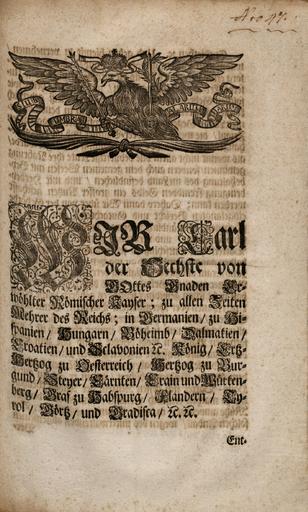 Nro 47.
WIR Carl
der Sechste von
GOttes Gnaden Er-
wöhlter Römischer Kayser; zu allen Zeiten
Mehrer des Reichs; in Germanien/ zu Hi-
spanien/ Hungarn/ Böheimb/ Dalmatien/
Croatien/ und Sclavonien ꝛc. König/ Ertz-
Hertzog zu Oesterreich/ Hertzog zu Bur-
gund/ Steyer/ Cärnten/ Crain und Würten-
berg/ Graf zu Habspurg/ Flandern/ Ty-
rol/ Görtz/ und Gradisca/ ꝛc. ꝛc.
Ent-